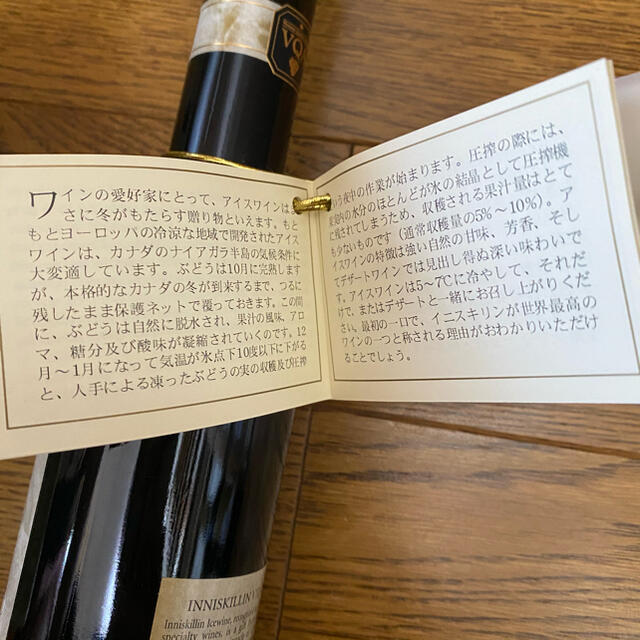 VQ
ワインの愛好家にとって、アイスワインは
さに冬がもたらす贈り物といえます。もと
もとヨーロッパの冷涼な地域で開発されたアイス
ワインは、カナダのナイアガラ半島の気候条件に
大変適しています。ぶどうは10月に完熟します
が、本格的なカナダの冬が到来するまで、つるに
残したまま保護ネットで覆っておきます。この間
に、ぶどうは自然に脱水され、果汁の風味、アロ
マ、糖分及び酸味が凝縮されていくのです。12
月〜1月になって気温が氷点下10度以下に下がる
と、人手による凍ったぶどうの実の収穫及び圧搾
夜中の作業が始まります。圧搾の際には、
内の水分のほとんどが氷の結晶として圧搾機
に残されてしまうため、収穫される果汁量はとて
も少ないものです（通常収穫量の5%〜10%）。ア
イスワインの特徴は強い自然の甘味、芳香、そし
てデザートワインでは見出し得ぬ深い味わいで
す。アイスワインは5〜7℃に冷やして、それだ
けで、またはデザートと一緒にお召し上がりくだ
さい。最初の一口で、イニスキリンが世界最高の
ワインの一つと称される理由がおわかりいただけ
ることでしょう。
INNISKILLIN
Inniskillin Icewine,
specialty wines, is a